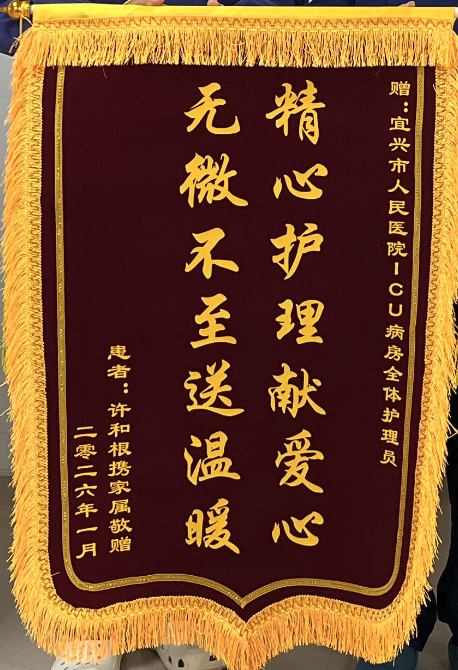 赠：宜兴市人民医院ICU病房全体护理员
精心护理献爱心
无微不至送温暖
患者：许和根携家属敬赠
二零二六年一月